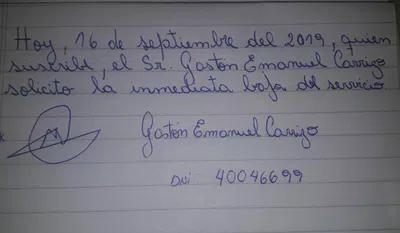 Hoy, 16 de septiembre del 2019, quien
suscribe, el Sr. Gastón Emanuel Carrizo
solicito la inmediata baja del servicio
Gastón Emanuel Carrizo
DNI: 40046699